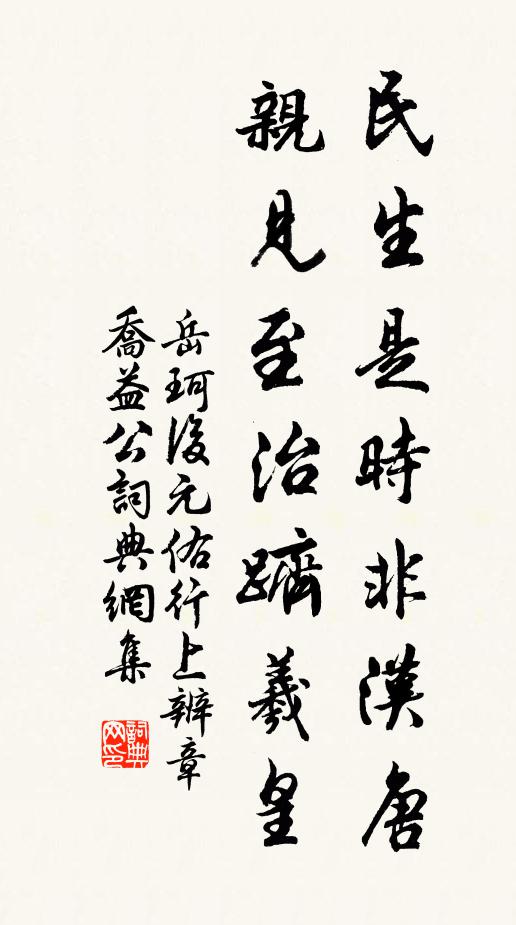 民生是時非漢唐
親見至治躋羲皇
岳珂後元佑行上辨章
喬益公詞典網集
詞典
网印